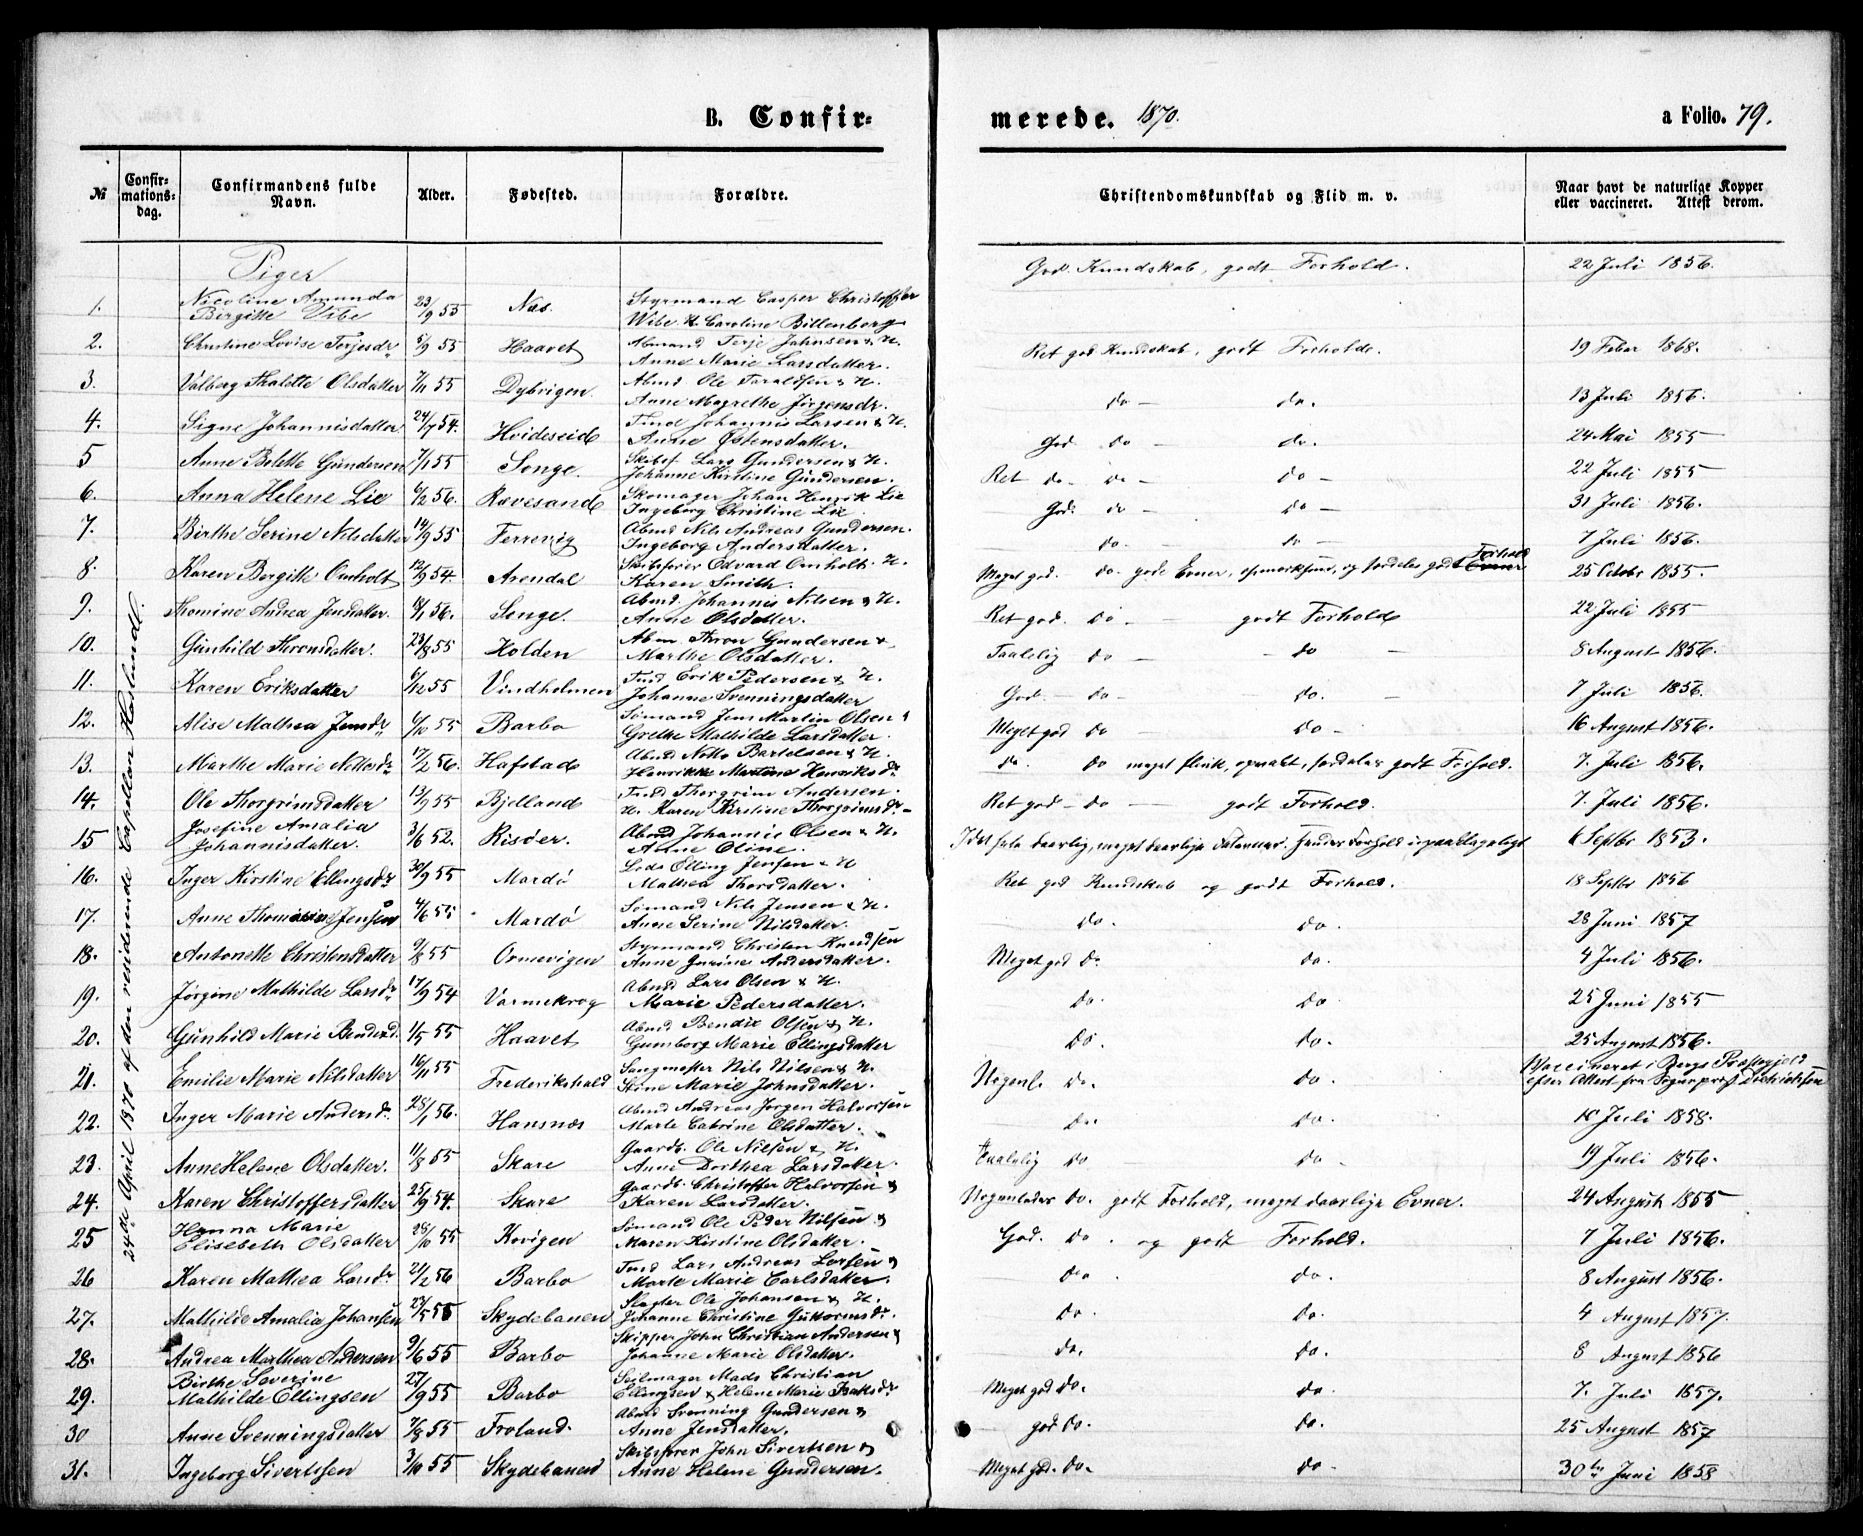 B. Confir-
merede. 1870.
a Folio. 79.
№
Confir-
mations-
dag.
Confirmandens fulde
Navn.
Alder.
Fødested.
Forældre.
Christendomskundskab og Flid m. v.
Naar havt de naturlige Kopper
eller vaccineret. Attest derom.
24de April 1870 af den residerende Capellan Haslund.
Piger
1. Nicoline Amunda Birgitte Vibe 23/9 55 Næs. Styrmand Casper Christoffer Wibe & Caroline Billenberg God Kundskab, godt Forhold. 22 Juli 1856.
2. Christine Lovise Terjesdr 5/9 55 Haavet Abmand Terje Jahnsen & H. Anne Marie Larsdatter. Ret god Kundskab, godt Forhold. 19 Febr 1868.
3. Valberg Thalette Olsdatter 7/11 55 Dybvigen. Abmd Ole Taraldsen & H. Anne Magrethe Jørgensdr. do — do. 13 Juli 1856.
4. Signe Johannisdatter 24/7 54. Hvideseid Tmd Johannis Larsen & H. Anne Østensdatter. God do — do. 24 Mai 1855
5 Anne Belette Gundersen 7/1 55 Songe. Skibsf. Lars Gundersen & H. Johanne Kirstine Gundersen. Ret do — do — do — 22 Juli 1855
6. Anna Helene Lie 6/2 56. Rævesand Skomager Johan Henrik Lie Ingeborg Christine Lie. God. do — do — 31 Juli 1856.
7. Birthe Serine Nilsdatter 14/9 55 Ferrevig Abmd Nils Andreas Gundersen. Ingeborg Andersdatter. do — do — 7 Juli 1856.
8. Karen Bergitte Omholt 12/9 54. Arendal Skibsfører Edvard Omholt & H. Karen Smith. Meget god. do gode Evner, opmerksom, og særdeles godt Forhold 25 Octobr 1855.
9. Thomine Andrea Jensdatter. 18/1 56. Songe. Abmd. Johannis Nilsen & H. Anne Olsdatter. Ret god. do — godt Forhold 22 Juli 1855
10. Gunhild Thronsdatter. 23/8 55 Holden Abm. Thron Gundersen & Marthe Olsdatter. Taalelig do — do — 8 August 1856.
11. Karen Eriksdatter 6/12 55 Vindholmen Tmd Erik Pedersen & H. Johanne Svenningsdatter God. — do — do. — 7 Juli 1856.
12. Alise Mathea Jensdr 6/10 55 Barbo Sømand Jens Martin Olsen & Grethe Mathilde Larsdatter. Meget god do — do — 16 August 1856.
13. Marthe Marie Nottosdr 17/2 56. Hafstad Abmd Notto Bartelsen & H. Henrikke Martine Henriksdr. do. do meget flink, opvakt, særdeles godt Forhold. 7. Juli 1856.
14. Ole Thorgrimsdatter 13/9 55 Bjelland Tmd Thorgrim Andersen. H. Karen Kirstine Thorgrimsdr. Ret god — do — godt Forhold. 7. Juli 1856.
15 Josefine Amalia Johannisdatter. 3/6 52. Risøer. Abmd Johannis Olsen & H. Anne Oline. 6 Septbr 1853.
16. Inger Kirstine Ellingsdr 30/9 55 Mardø Lods Elling Jensen & H Mathea Thorsdatter. Ret god Kundskab og godt Forhold. 18 Septbr 1856
17. Anne Thomine Jensen 4/6 55 Mardø Sømand Nils Jensen & H. Anne Serine Nilsdatter. do. do. 28 Juni 1857
18. Antonette Christensdatter 9/8 55 Ormevigen Styrmand Christen Knudsen Anne Gurine Andersdatter. Meget god do. do. 4 Juli 1856.
19. Jørgine Mathilde Larsdr 17/9 54 Varmekrog Abmd Lars Olsen & H. Marie Pedersdatter. do. do 25 Juni 1855
20. Gunhild Marie Bendixd. 1/5 55 Haavet Abmd Bendix Olsen & H. Gumborg Marie Ellingsdatter do. do. 25 August 1856.
21. Emilie Marie Nilsdatter 16/11 55 Frederikshald Sangmester Nils Nilsen & H. Stine Marie Johnsdatter. Nogenl. do. do. Vaccineret i Bergs Præstegjeld efter Attest fra Sognepræst Dietrichson
22. Inger Marie Andersdr. 28/1 56. Hansnæs Abmd Andreas Jørgen Halvorsen Marte Catrine Olsdatter. do. do. 18 Juli 1858.
23. Anne Helene Olsdatter. 11/8 55 Skare Gaardb. Ole Nielsen & H. Anne Dorthea Larsdatter. Taalelig do — do. 19 Juli 1856.
24. Karen Christoffersdatter 25/9 54. Skare Gaardb. Christoffer Halvorsen & Karen Larsdatter. Nogenledes do. godt Forhold, meget daarlige Evner. 24 August 1855
25 Hanna Marie Elisebeth Olsdatter 28/10 55 Kovigen Sømand Ole Peder Nilsen & Maren Kirstine Olsdatter. God. do. og godt Forhold. 7 Juli 1856.
26 Karen Mathea Larsdr 21/2 56 Barbo Tmd Lars Andreas Larsen & Marte Marie Carlsdatter. do. do. 8 August 1856.
27. Mathilde Amalia Johansen 23/5 55 Skydebanen Slagter Ole Johansen & H. Johanne Christine Guttormsdr. do. do. 4 August 1857.
28. Andrea Marthea Andersen 9/6 55 Barbo Skipper John Christian Andersen & Johanne Marie Olsdatter. do. do. 8 August 1856
29. Birthe Severine Mathilde Ellingsen 27/9 55 Barbo Seilmager Mads Christian Ellingsen & Helene Marie Isaksdr Meget god do. do. 7. Juli 1857.
30 Anne Svenningsdatter 7/8 55 Froland. Abmd Svenning Gundersen & Anne Jensdatter. god do. do. 25 August 1857
31. Ingeborg Sivertsen 3/10 55 Skydebanen Skibsfører John Sivertsen & Anne Helene Gundersen. Meget god. do. do. 30te Juni 1858